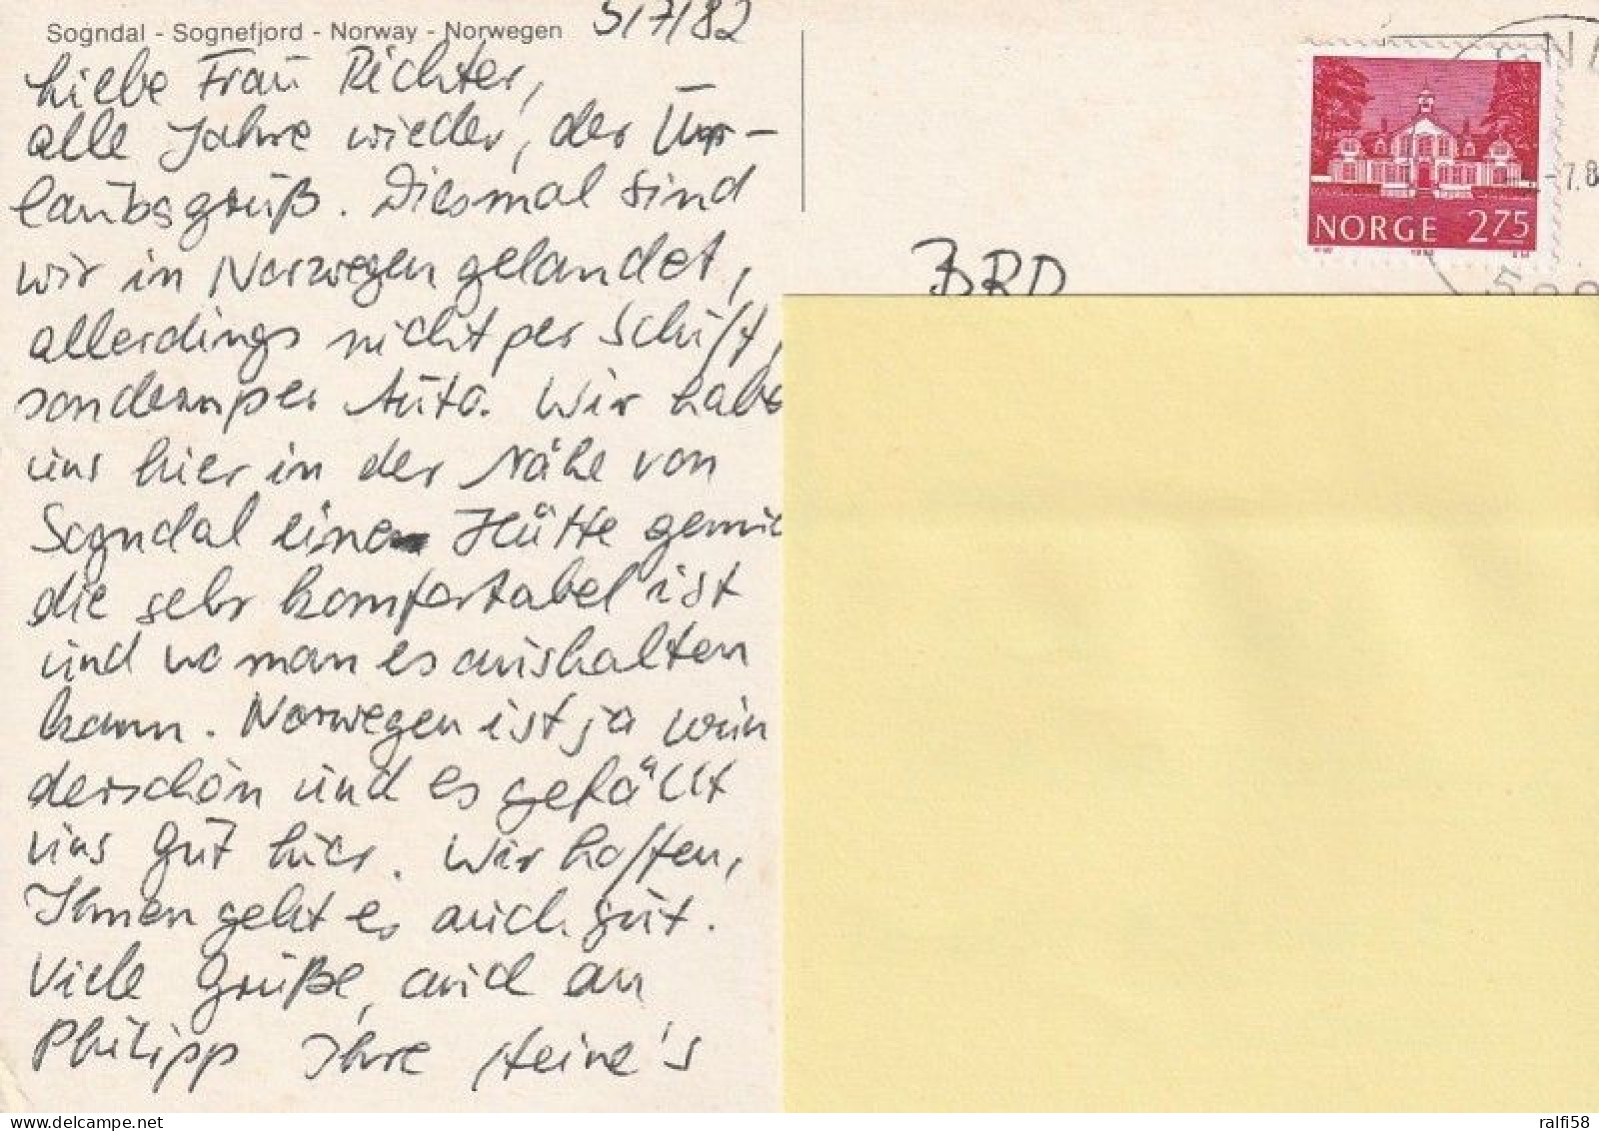 Sogndal - Sognefjord - Norway - Norwegen
5/7/82
Liebe Frau Richter,
alle Jahre wieder, der Ur-
laubsgruß. Diesmal sind
wir in Norwegen gelandet,
allerdings nicht per Schiff,
sondern per Auto. Wir habe
uns hier in der Nähe von
Sogndal eine Hütte gemie
die sehr komfortabel ist
und wo man es aushalten
kann. Norwegen ist ja wun
derschön und es gefällt
uns gut hier. Wir hoffen,
Ihnen geht es auch gut.
Viele Grüße, auch an
Philipp Ihre Heine's
NORGE 275
-7.8
BRD
ralfi58